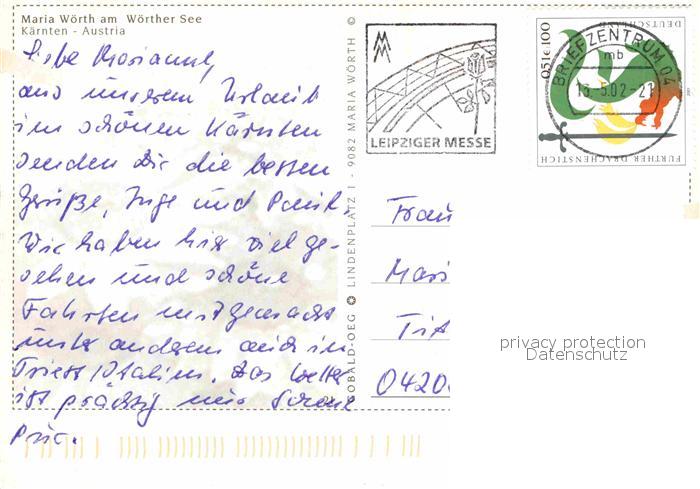 Maria Wörth am Wörther See
Kärnten - Austria
Liebe Marianne,
aus unserem Urlaub
im schönen Kärnten
senden Dir die besten
Grüße, Inge und Paul.
Wir haben hier viel ge-
sehen und schöne
Fahrten mitgemacht
unter anderem auch in
Triest/Italien. Das Wetter
ist prächtig nur Sonne
pur.
OBALD-OEG LINDENPLATZ 1 - 9082 MARIA WÖRTH ©
LEIPZIGER MESSE
BRIEFZENTRUM 04
mb
13.5.02-21
DEUTSCHLAND
0,51 € 100
2001
FURTHER DRACHENSTICH
Frau
Mari
0420
privacy protection
Datenschutz